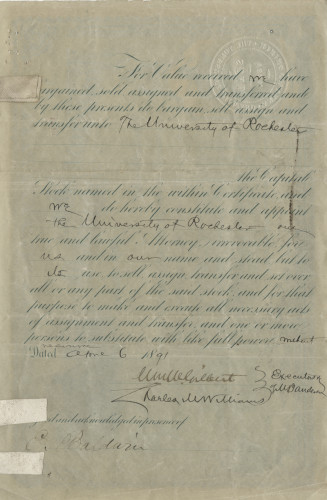 For Value received we have
bargained sold assigned and transferred and
by these presents do bargain, sell assign and
transfer unto The University of Rochester
the Capital
Stock named in the within Certificate and
we do hereby constitute and appoint
the University of Rochester our
true and lawful Attorney, irrevocable for
us and in our name and stead but to
its use, to sell assign, transfer and set over
all or any part of the said stock, and for that
purpose to make and execute all necessary acts
of assignment and transfer, and one or more
persons to substitute with like full power, without
Dated June 6 1891
Executors
Charles M Williams
and acknowledged in presence of